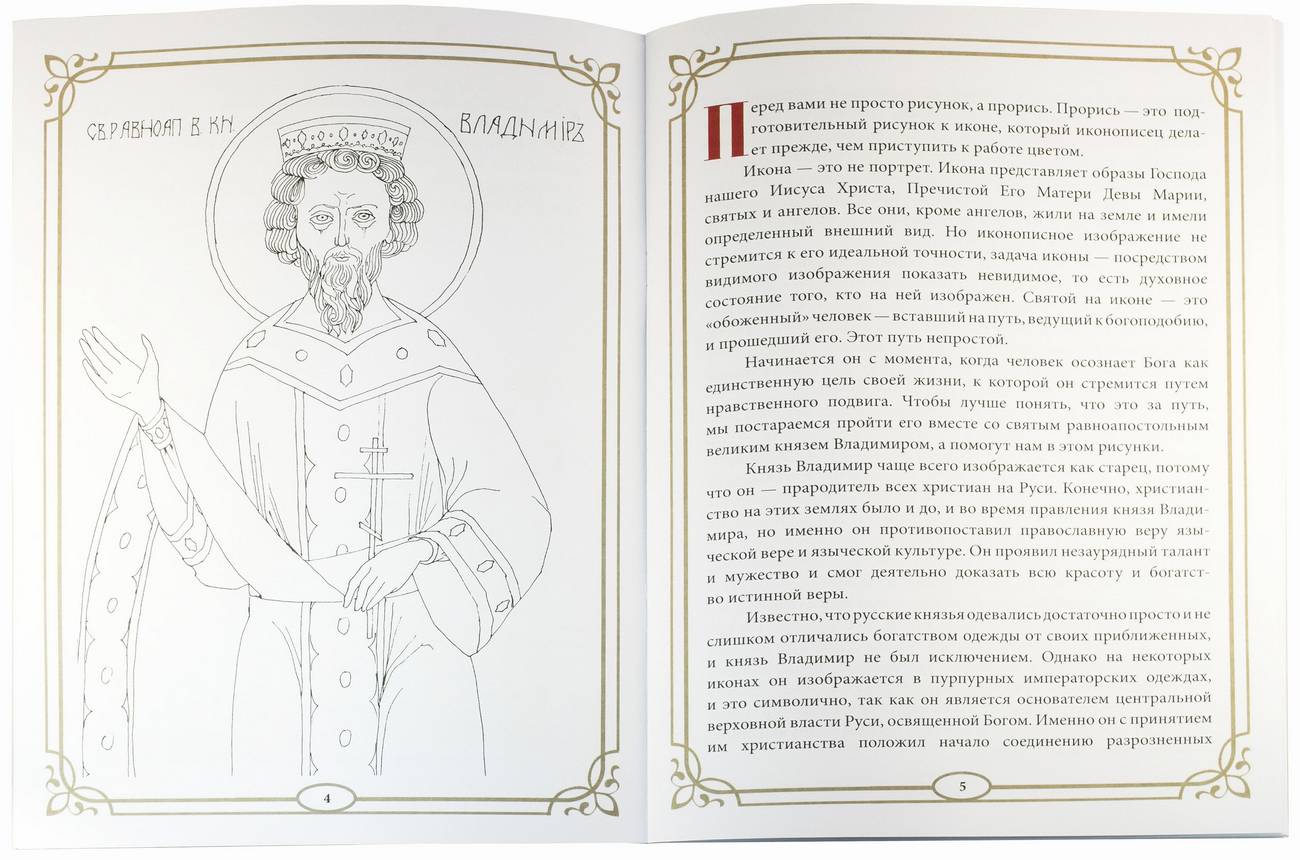 СВ. РАВНОАП В. КН. ВЛАДИМIРЪ
4
Перед вами не просто рисунок, а прорись. Прорись — это под-
готовительный рисунок к иконе, который иконописец дела-
ет прежде, чем приступить к работе цветом.
Икона — это не портрет. Икона представляет образы Господа
нашего Иисуса Христа, Пречистой Его Матери Девы Марии,
святых и ангелов. Все они, кроме ангелов, жили на земле и имели
определенный внешний вид. Но иконописное изображение не
стремится к его идеальной точности, задача иконы — посредством
видимого изображения показать невидимое, то есть духовное
состояние того, кто на ней изображен. Святой на иконе — это
«обоженный» человек — вставший на путь, ведущий к богоподобию,
и прошедший его. Этот путь непростой.
Начинается он с момента, когда человек осознает Бога как
единственную цель своей жизни, к которой он стремится путем
нравственного подвига. Чтобы лучше понять, что это за путь,
мы постараемся пройти его вместе со святым равноапостольным
великим князем Владимиром, а помогут нам в этом рисунки.
Князь Владимир чаще всего изображается как старец, потому
что он — прародитель всех христиан на Руси. Конечно, христиан-
ство на этих землях было и до, и во время правления князя Влади-
мира, но именно он противопоставил православную веру язы-
ческой вере и языческой культуре. Он проявил незаурядный талант
и мужество и смог деятельно доказать всю красоту и богатст-
во истинной веры.
Известно, что русские князья одевались достаточно просто и не
слишком отличались богатством одежды от своих приближенных,
и князь Владимир не был исключением. Однако на некоторых
иконах он изображается в пурпурных императорских одеждах,
и это символично, так как он является основателем центральной
верховной власти Руси, освященной Богом. Именно он с принятием
им христианства положил начало соединению разрозненных
5